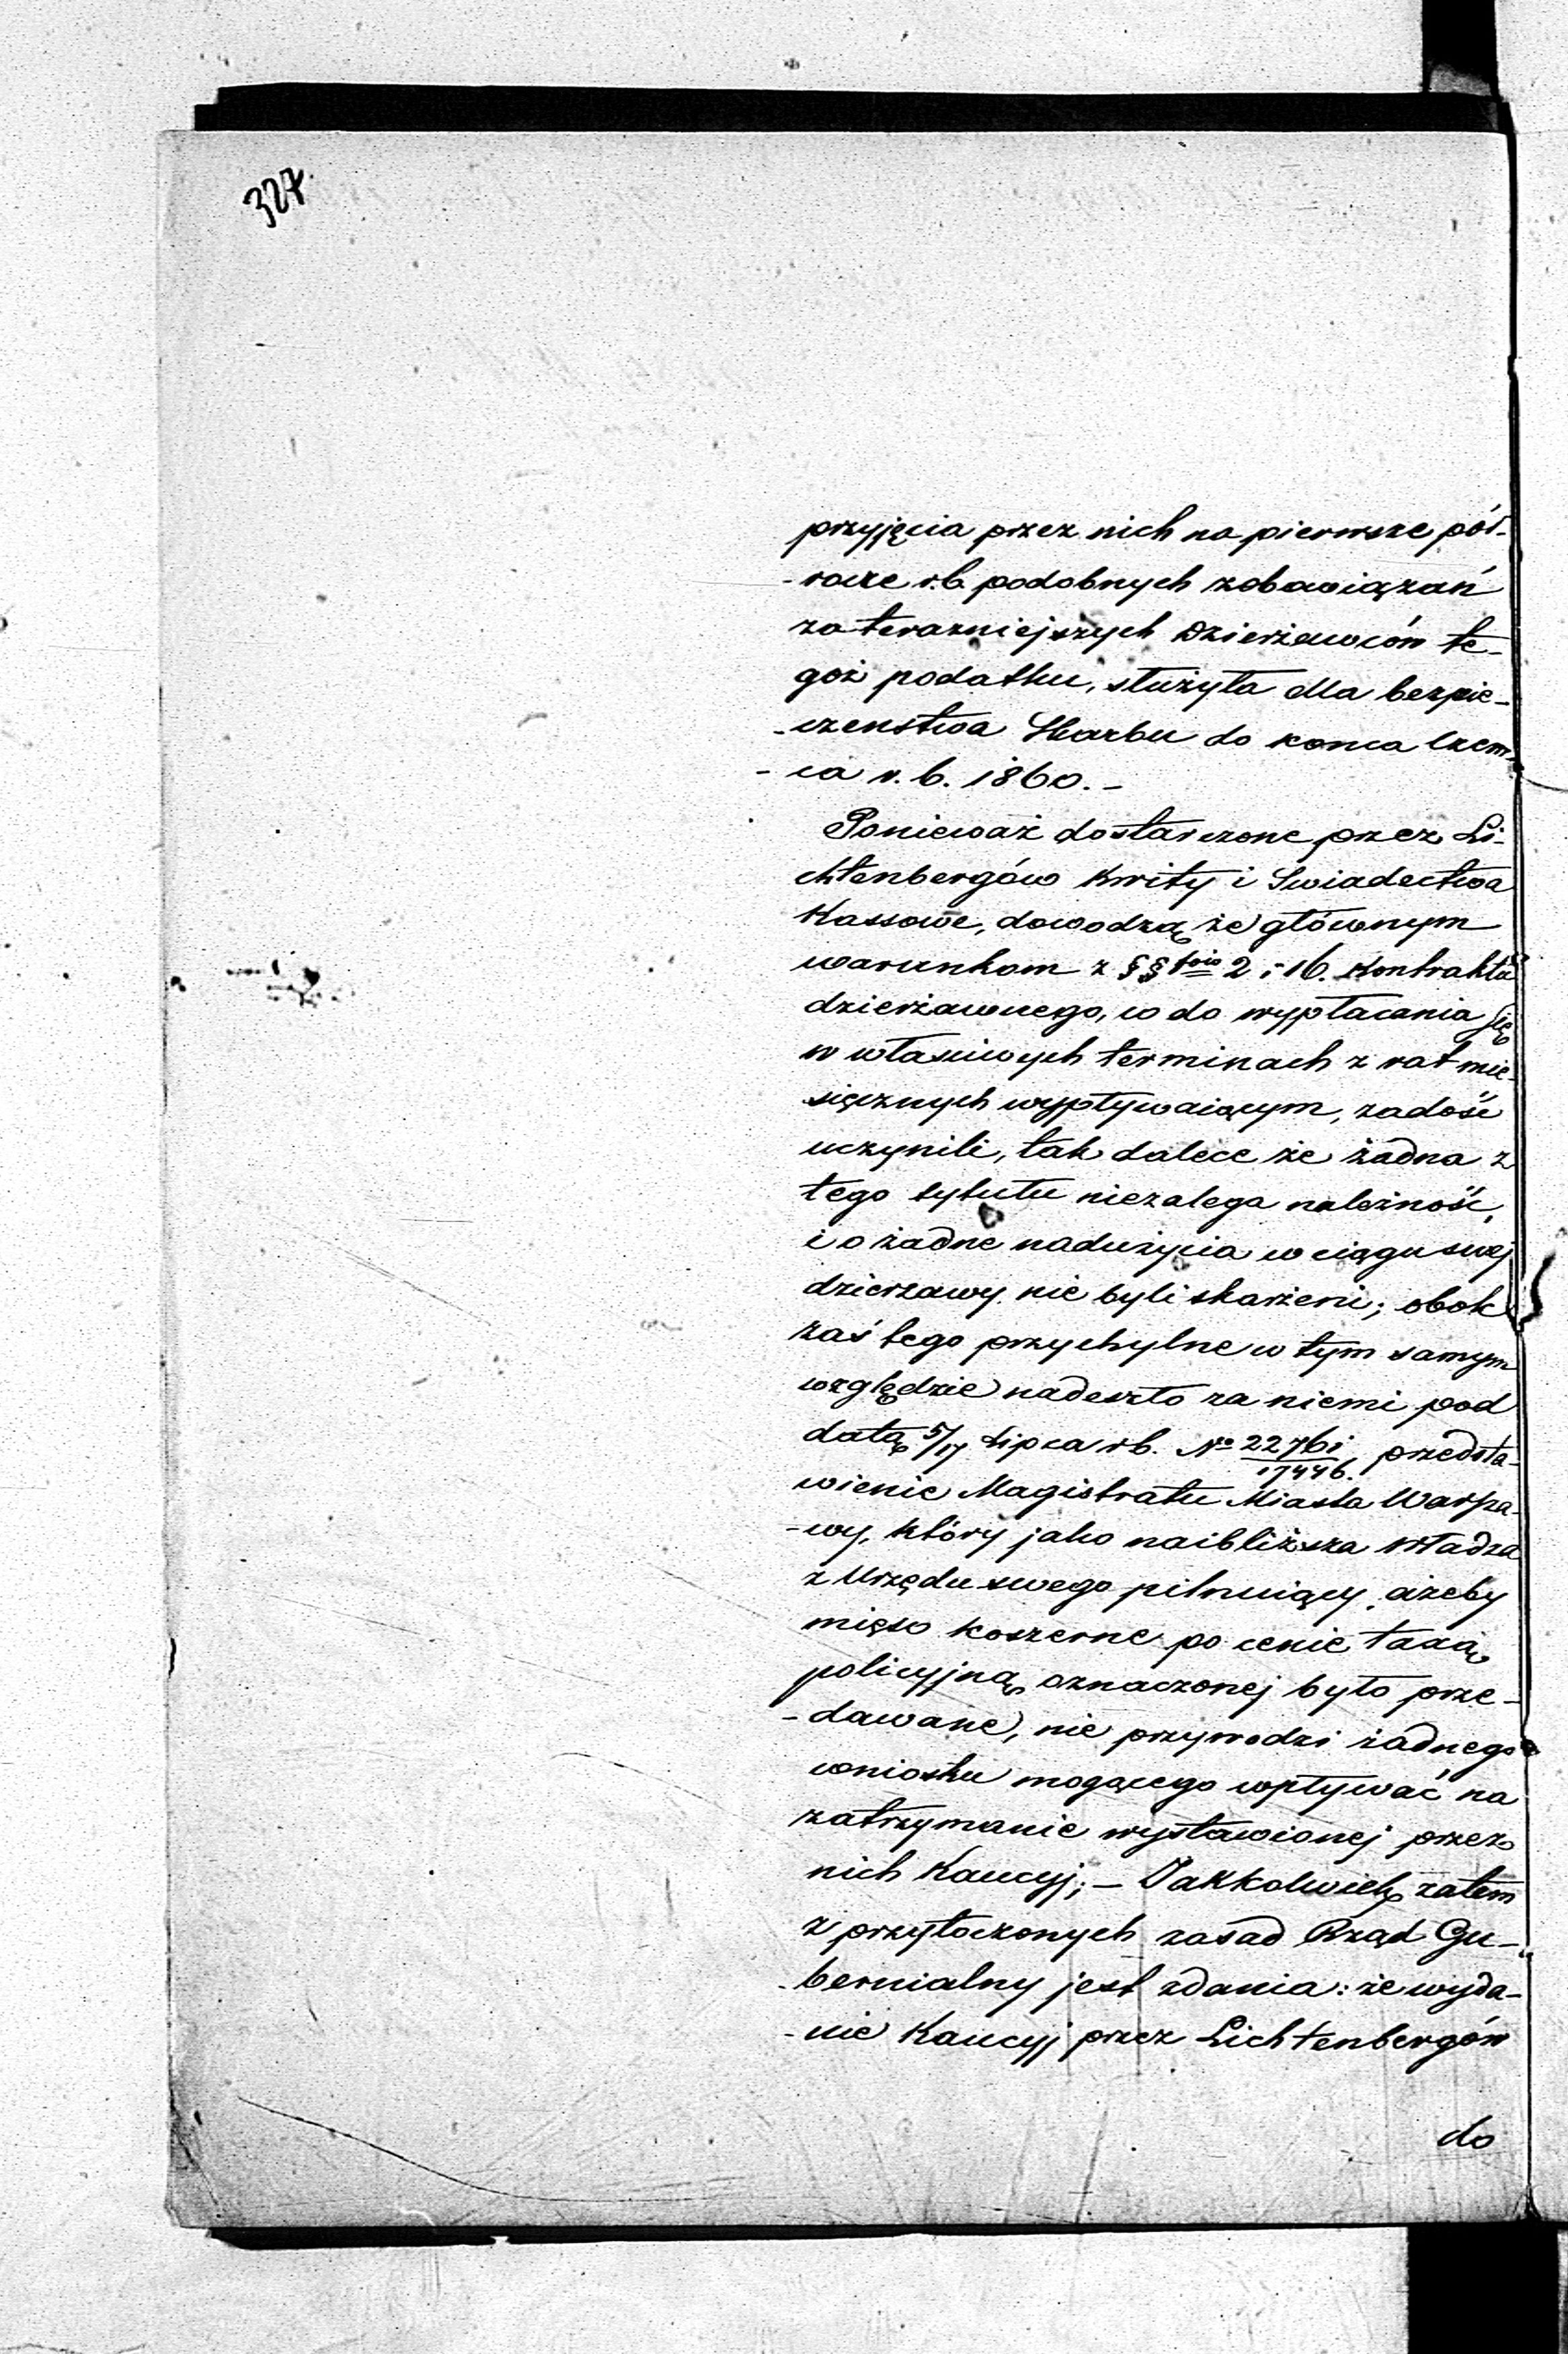 327.
przyjęcia przez nich na pierwsze pół-
-rocze r.b. podobnych zobowiązań
za teraźniejszych Dzierżawców te-
goż podatku, służyła dla bezpie-
-czenstwa Skarbu do konca Czerw-
-ca r. b. 1860. -
Ponieważ dostarczone przez Li-
chtenbergów Kwity i Swiadectwa
Kassowe, dowodzą że głównym
warunkom z §§ 2 i 16. Kontraktu
dzierżawnego, co do wypłacania się
w własciwych terminach z rat mie-
sięcznych wypływaiącym, zadość
uczynili, tak dalece że żadna z
tego tytułu niezalega należność,
i o żadne nadużycia w ciągu swej
dzierzawy nie byli skarżeni; obok
zaś tego przychylne w tym samym
względzie nadeszło za niemi pod
datą 5/17 Lipca r.b. No 22761/17446. przedsta-
wienie Magistratu Miasta Warsza-
-wy, który jako naibliższa władza
z Urzędu swego pilnuiący, ażeby
mięso koszerne po cenie taxą
policyjną oznaczonej było prze-
-dawane, nie przywodzi żadnego
wniosku mogącego wpływać na
zatrzymanie wystawionej przez
nich Kaucyj; - Jakkolwiek zatem
z przytoczonych zasad Rząd Gu-
-bernialny jest zdania: że wyda-
-nie Kaucyj przez Lichtenbergów
do